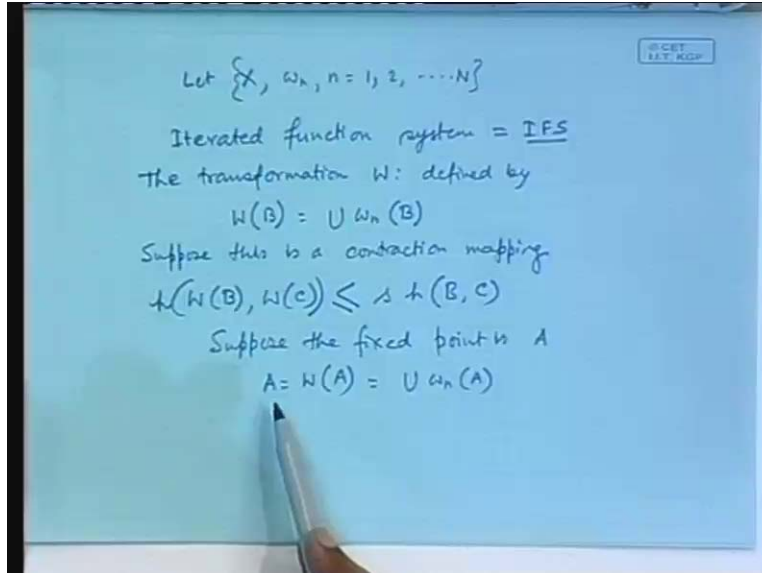 © CET
I.I.T. KGP
Let {X, ωn, n = 1, 2, ·····N}
Iterated function system = IFS
The transformation W: defined by
W(B) = ∪ ωn (B)
Suppose this is a contraction mapping
h(W(B), W(C)) ≤ s h(B, C)
Suppose the fixed point is A
A = W(A) = ∪ ωn (A)